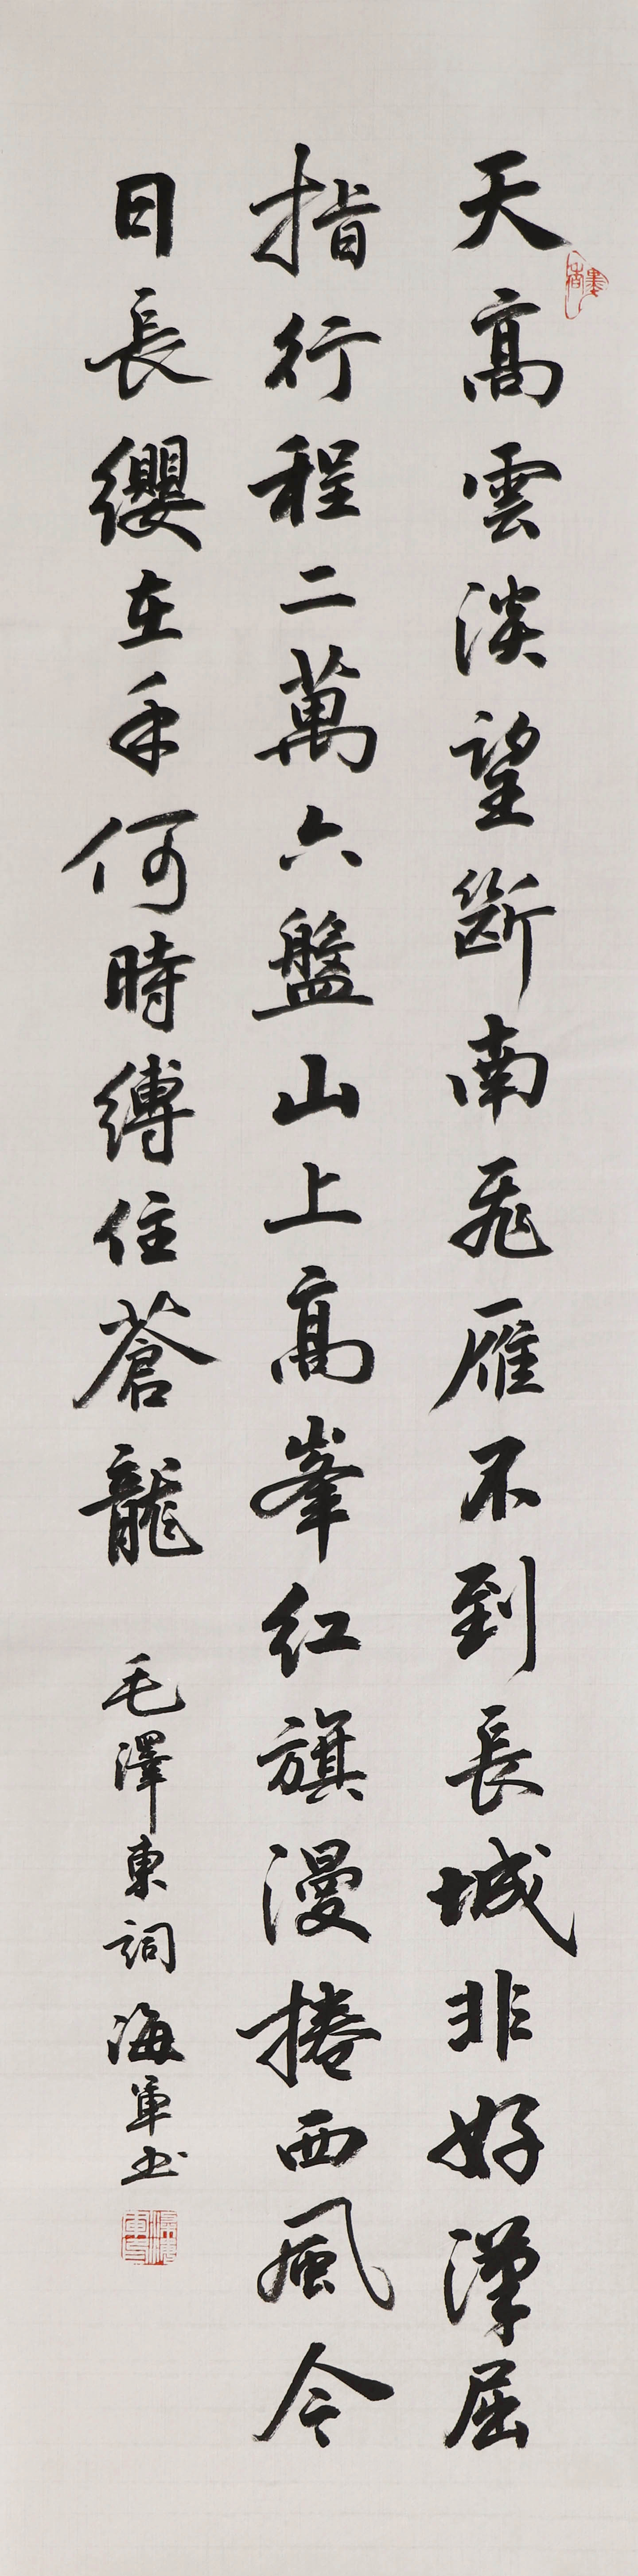 天高雲淡望斷南飛雁不到長城非好漢屈
指行程二萬六盤山上高峯红旗漫捲西風今
日長纓在手何時縛住蒼龍
毛澤東詞海軍书